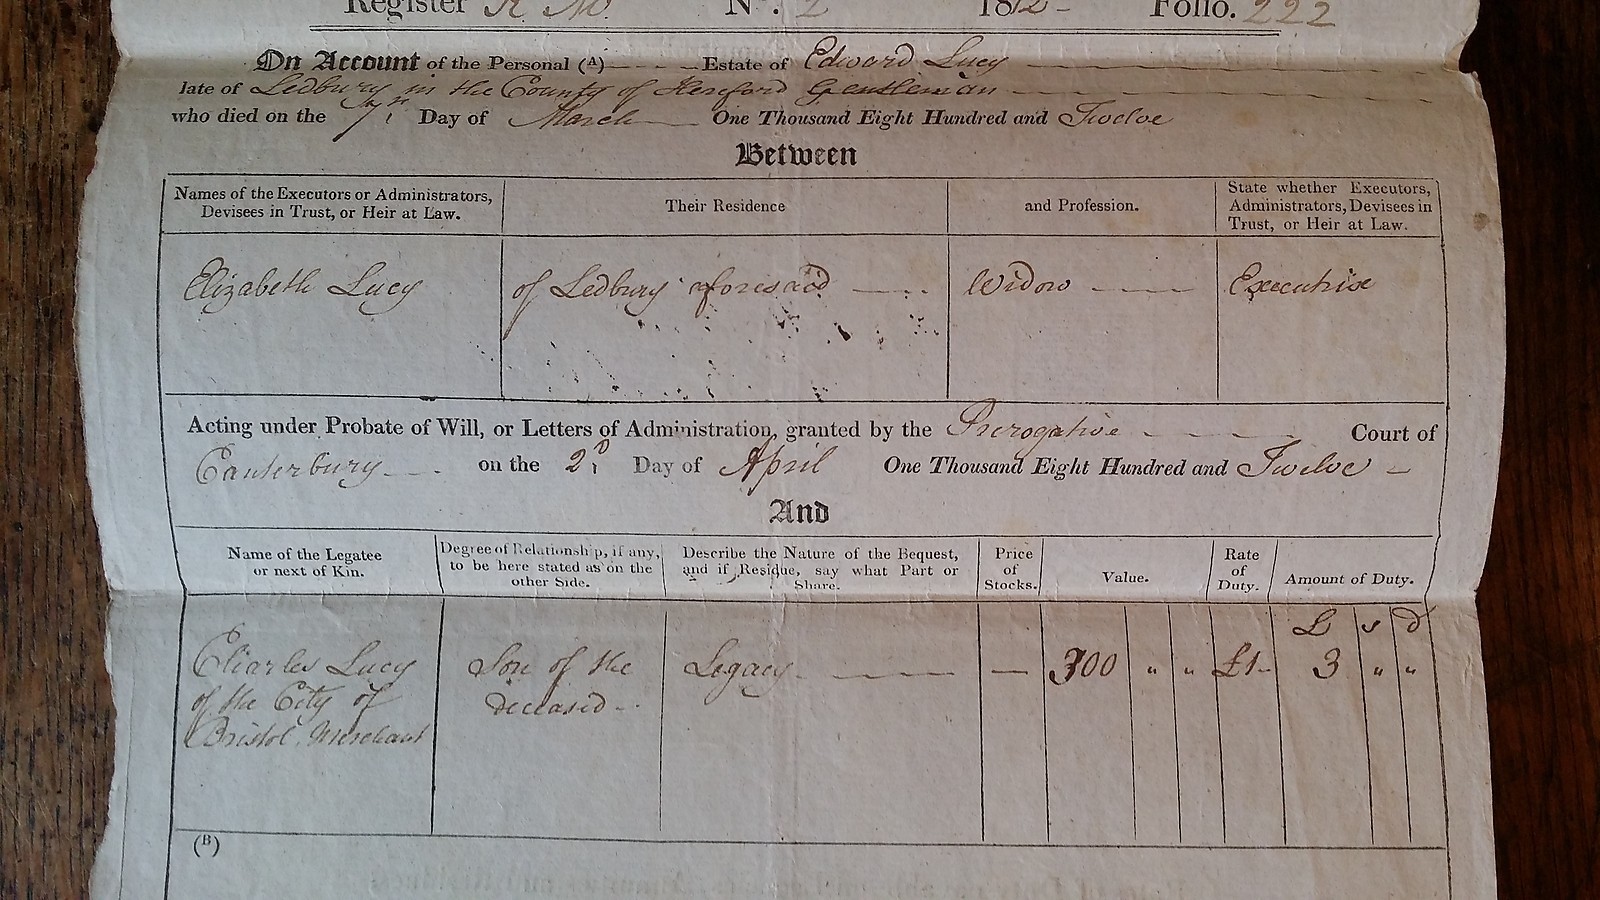 Register No. 2 1812 Folio. 222
On Account of the Personal (A) Estate of Edward Lucy
late of Ledbury in the County of Hereford Gentleman
who died on the Day of March One Thousand Eight Hundred and Twelve
Between
Names of the Executors or Administrators, Devisees in Trust, or Heir at Law.
Their Residence
and Profession.
State whether Executors, Administrators, Devisees in Trust, or Heir at Law.
Elizabeth Lucy
of Ledbury aforesaid
Widow
Executrix
Acting under Probate of Will, or Letters of Administration, granted by the Prerogative Court of
Canterbury on the 2d Day of April One Thousand Eight Hundred and Twelve
And
Name of the Legatee
or next of Kin.
Degree of Relationship, if any,
to be here stated as on the
other Side.
Describe the Nature of the Bequest,
and if Residue, say what Part or
Share.
Price
of
Stocks.
Value.
Rate
of
Duty.
Amount of Duty.
£ s d
Charles Lucy
of the City of
Bristol Merchant
Son of the
deceased
Legacy
— 300 " " £1 3 " "
(B)